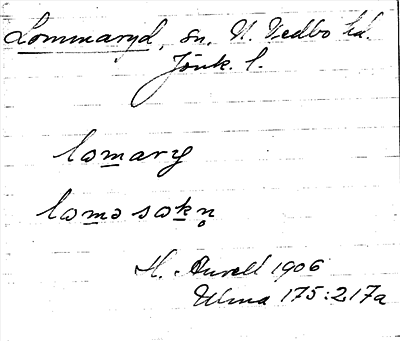 Lommaryd, sn. N. Vedbo hd.
Jönk. l.
lomary
lomə sokn̥
H. Anvell 1906
Ulma 175:217a